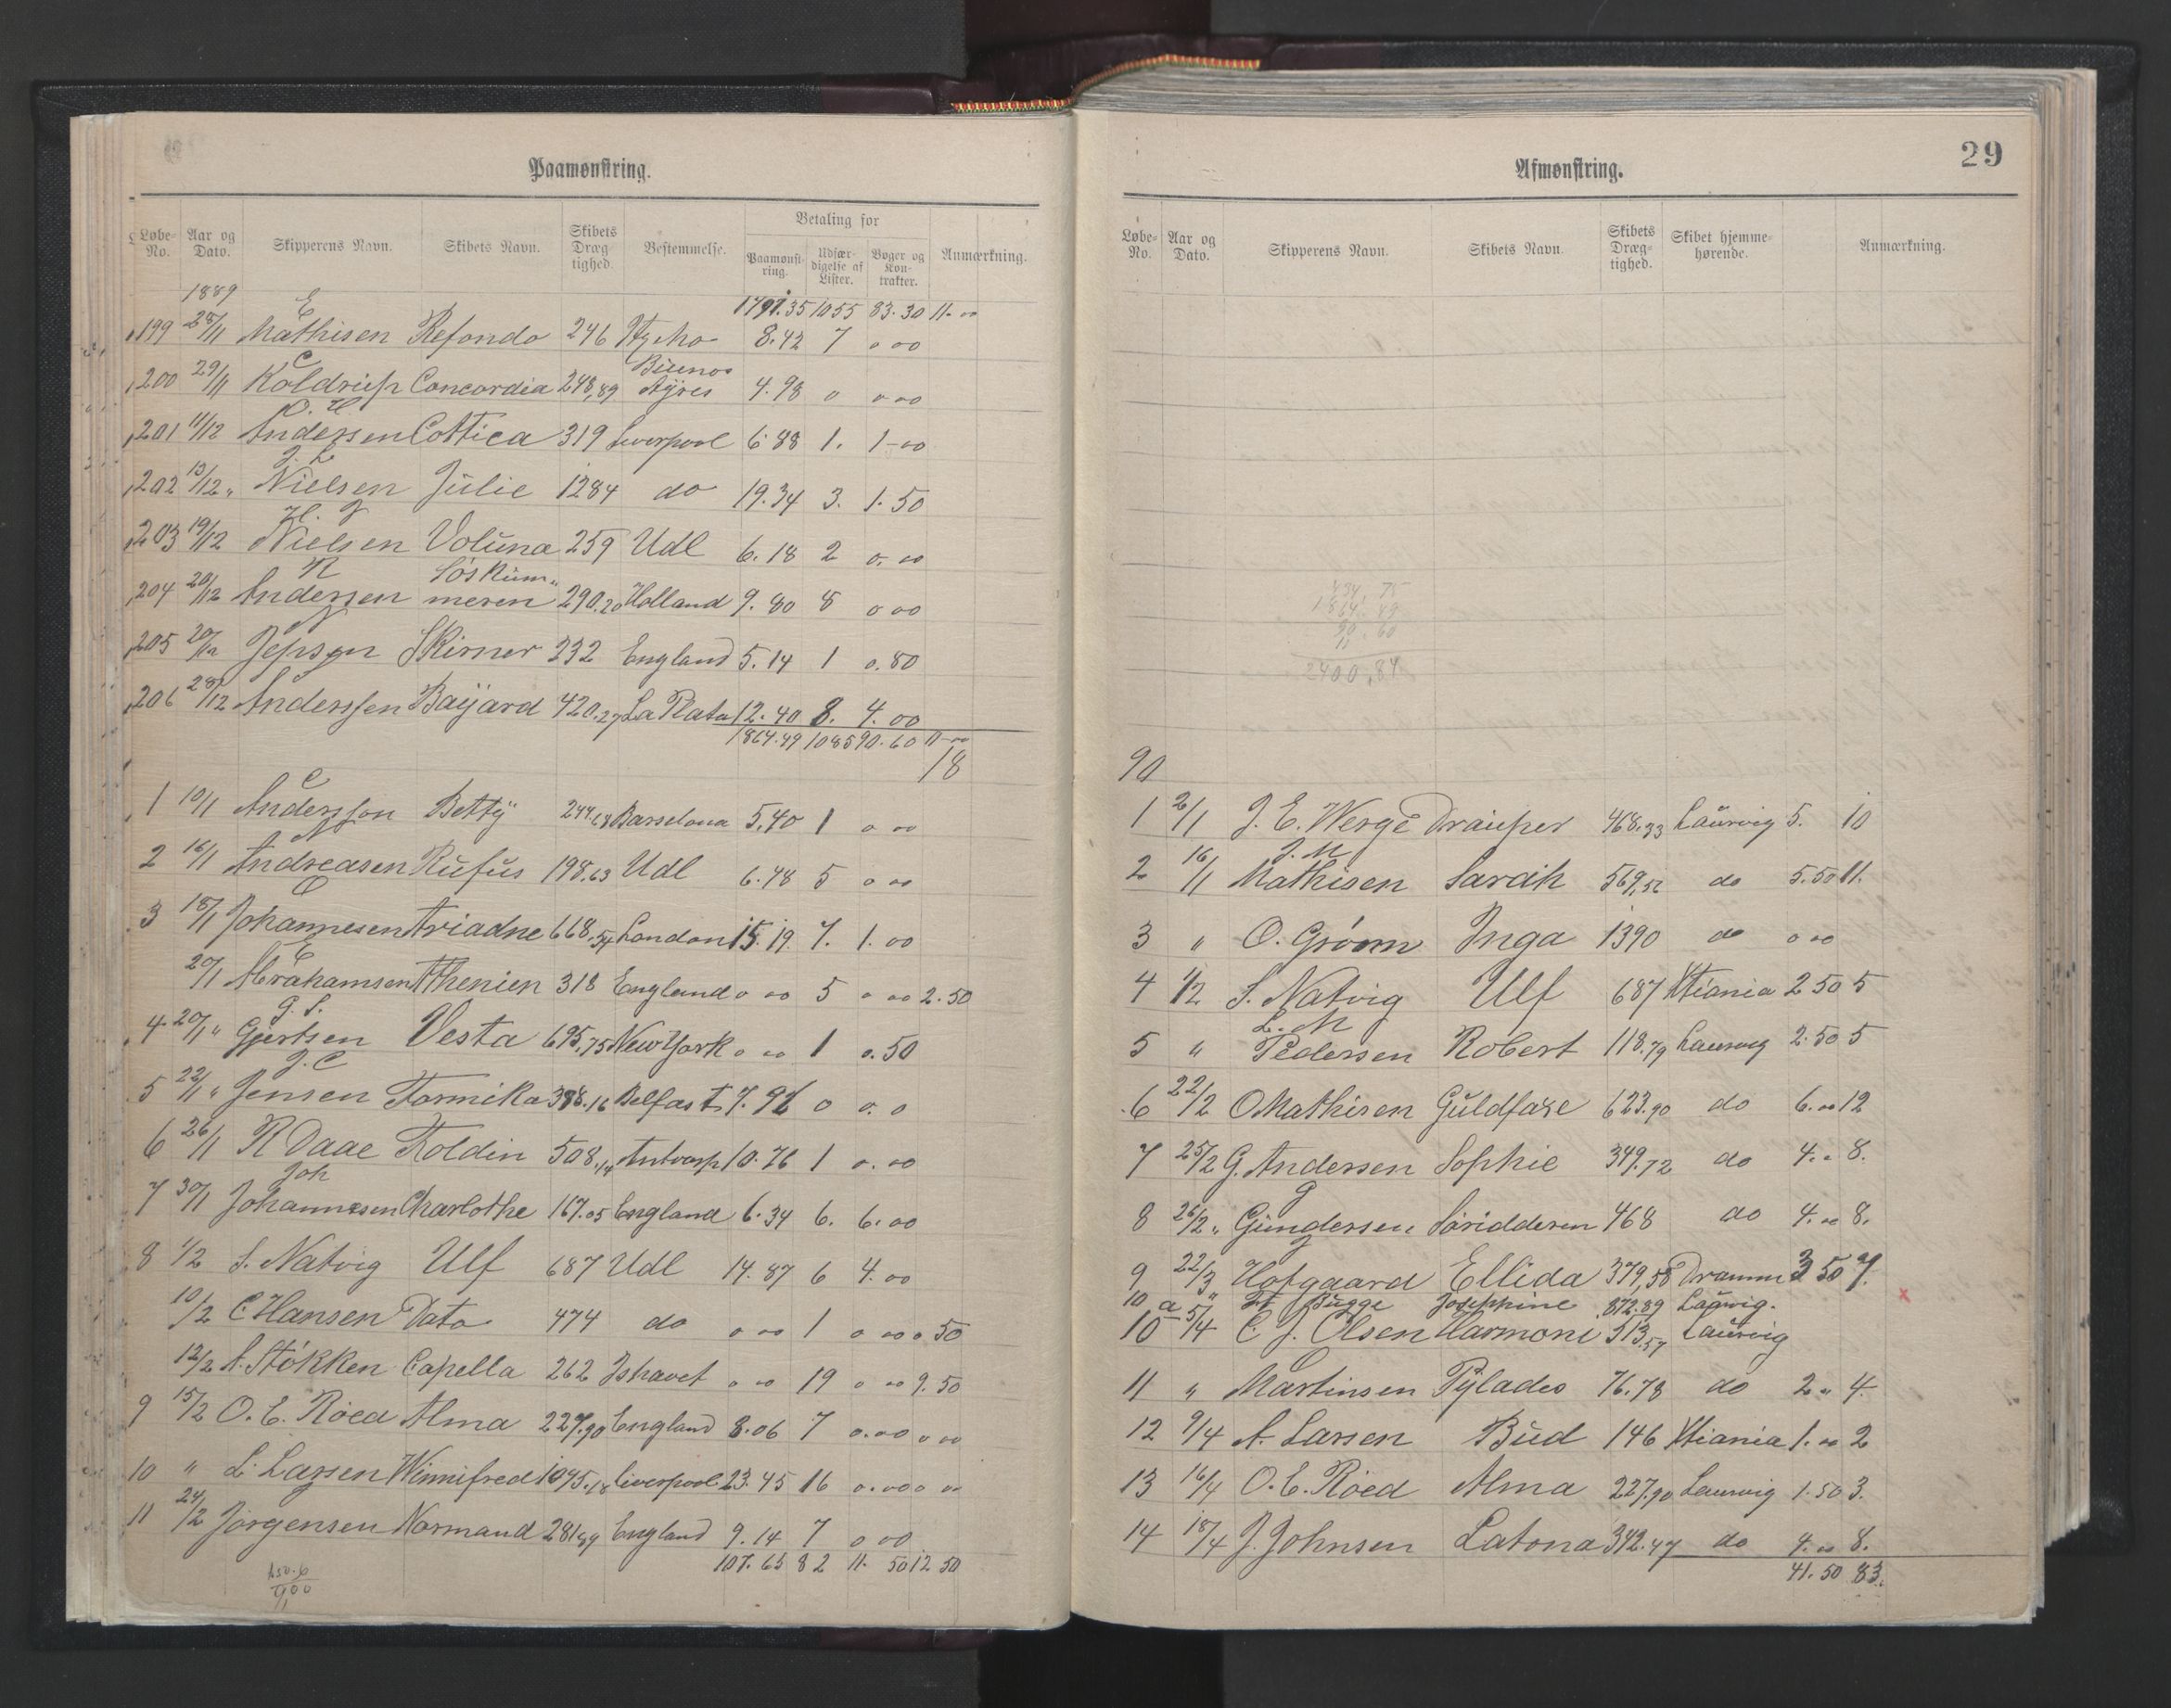 Paamønstring.
Løbe-No. Aar og Dato. Skipperens Navn. Skibets Navn. Skibets Dræg tighed. Bestemmelse. Betaling for Paamønst-ring. Udfær-digelse af Lister. Bøger og Kon-trakter. Anmærkning.
1889 1791.35 1055 83.30 11.00
199 28/11 E Mathisen Refondo 246 8.42 7 0 00
200 29/11 C Koldrup Concordia 248,89 Buenos Ayres 4.98 0 0 00
201 11/12 O. H Andersen Cottica 319 Liverpool 6.88 1. 1-00
202 13/12 " J. L Nielsen Julie 1284 do 19.34 3. 1.50
203 19/12 H. J Nielsen Voluna 259 Udl 6.18 2 0.00
204 20/12 N Andersen Søskum" meren 290.20 Holland 9.80 8 0 00
205 20/12 Jepsen Skirner 232 England 5.14 1 0.80
206 28/12 Anderssen Bayard 420.27 La Plata 12.40 8. 4.00
1864.49 1085 90.60 11-00
18
1 10/1 C Andersson Betty 244.68 Barselona 5.40 1 0 00
2 16/1 N Andreasen Rufus 198.63 Udl 6.48 5 0 00
3 18/1 C Johannesen Ariadne 668.54 London 15.19 7. 1.00
20/1 E Abrahamsen Athenien 318 England 0 00 5 0 00 2.50
4 20/1 " G. S. Gjertsen Vesta 695.75 New York 0 00 1 0.50
5 22/1 " J. C Jensen Formika 388.16 Belfast 7.96 0 0. 0
6 26/1 R Daae Roldin 508.14 Antwerp 10.76 1 0.00
7 30/1 Joh Johannesen Charlothe 167.05 England 6.34 6. 6.00
8 1/2 S. Natvig Ulf 687 Udl 14.87 6 4.00
10/2 C Hansen Dato 474 do 0 00 1 0 00 0 50
12/2 A. Støkken Capella 262 Ishavet 0 00 19 0 00 9.50
9 15/2 O. E. Røed Alma 227.90 England 8.06 7 0.00 0 00
10 " L. Larsen Winnifred 1095.18 Liverpool 23.45 16 0.00 0 00
11 24/2 Jørgensen Normand 281,89 England 9.14 7 0 00
107.65 82 11.50 12 50
29
Afmønstring.
Løbe-No. Aar og Dato. Skipperens Navn. Skibets Navn. Skibets Dræg-tighed. Skibet hjemme-hørende. Anmærkning.
90
1 2/1 J. E. Werge Draupner 468.33 Laurvig 5. 10
2 16/1 J. M Mathisen Sarah 569,52 do 5.50 11.
3 " O. Grønn Inga 1390 do 0 00
4 1/2 S. Natvig Ulf 687 Xtiania 2 50 5
5 " L. M Pedersen Robert 118.79 Laurvig 2.50 5
6 22/2 O Mathisen Guldfaxe 623.90 do 6.00 12
7 25/2 G. Andersen Sophie 349.72 do 4." 8.
8 26/2 " G Gundersen Søridderen 468 do 4.00 8.
9 22/3 " J Hofgaard Ellida 379,58 Dramm 3 50 7.
10 a Fr Bugge Josephine 872.89 Laurvig.
10 5/4 C. J. Olsen Harmoni 513.57 Laurvig
11 " Martinsen Pylades 76.78 do 2 " 4.
12 9/4 A. Larsen Bud 146 Xtiania 1.00 2
13 16/4 O. E. Røed Alma 227.90 Laurvig 1.50 3.
14 18/4 J. Johnsen Latona 342.47 do 4.00 8.
41.50 83.